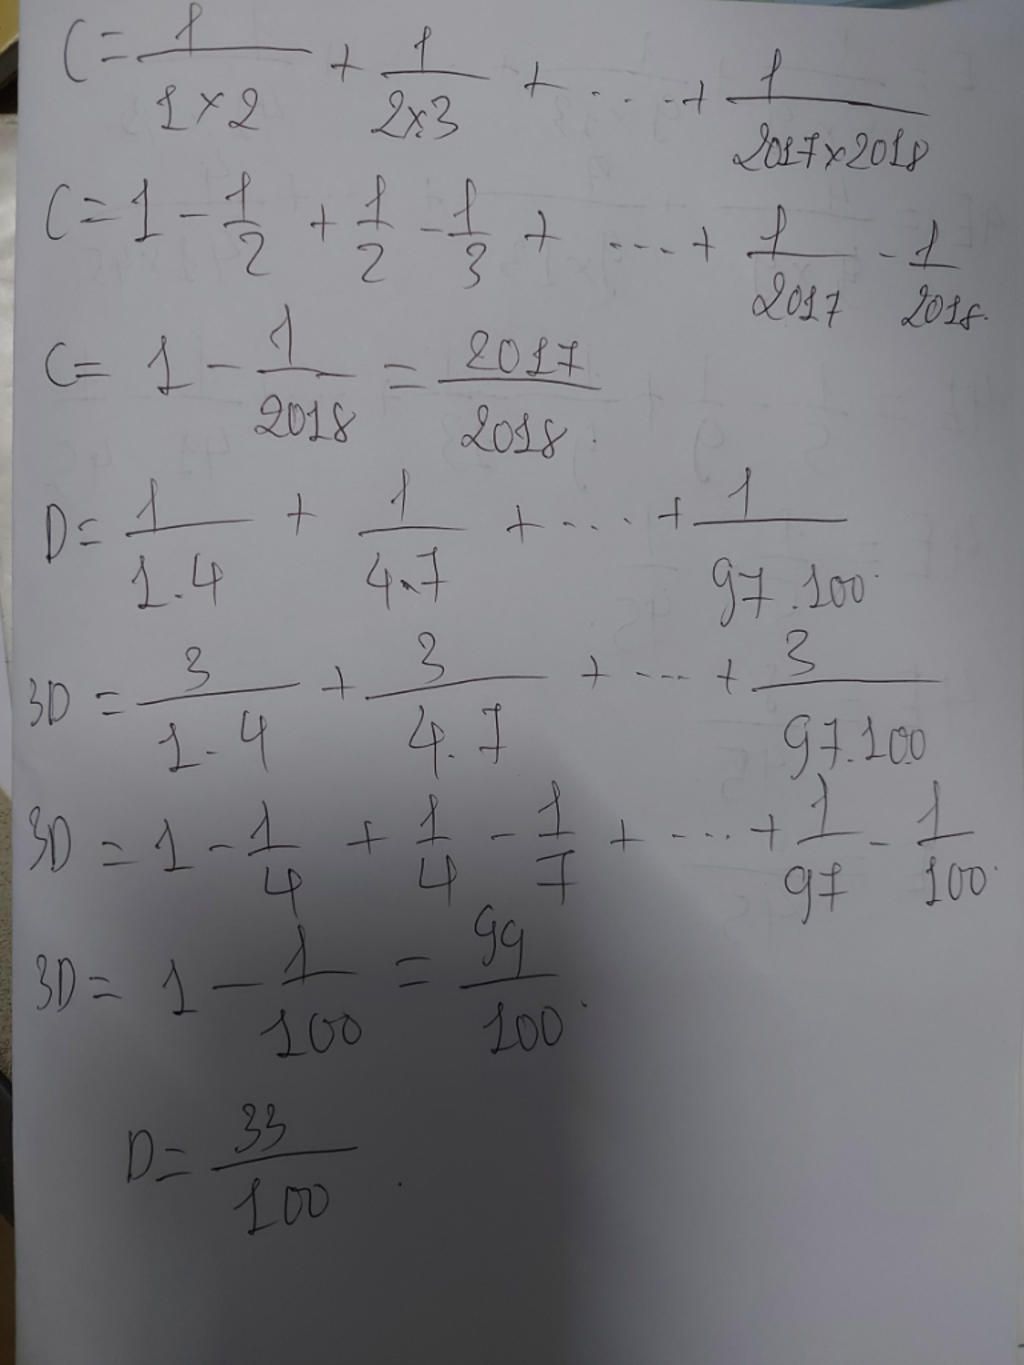 C = 1/(1×2) + 1/(2×3) + ... + 1/(2017×2018)
C = 1 - 1/2 + 1/2 - 1/3 + ... + 1/2017 - 1/2018.
C = 1 - 1/2018 = 2017/2018.
D = 1/(1.4) + 1/(4.7) + ... + 1/(97.100).
3D = 3/(1.4) + 3/(4.7) + ... + 3/(97.100)
3D = 1 - 1/4 + 1/4 - 1/7 + ... + 1/97 - 1/100.
3D = 1 - 1/100 = 99/100.
D = 33/100.